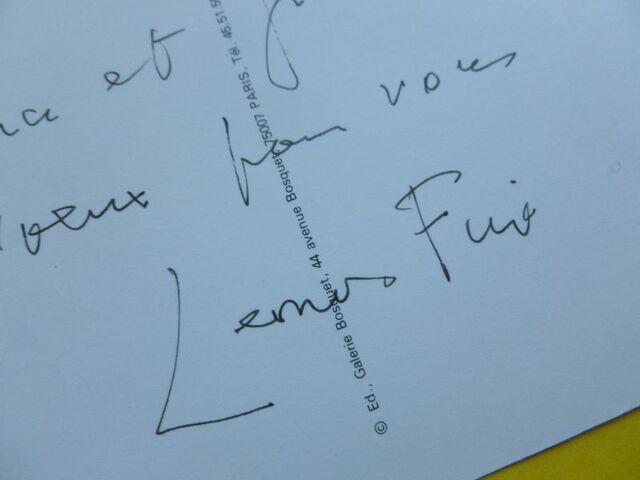 et
voeux pour vous
Leonor Fini
© Ed., Galerie Bosquet, 44 avenue Bosquet 75007 PARIS, Tél. 45.51.5